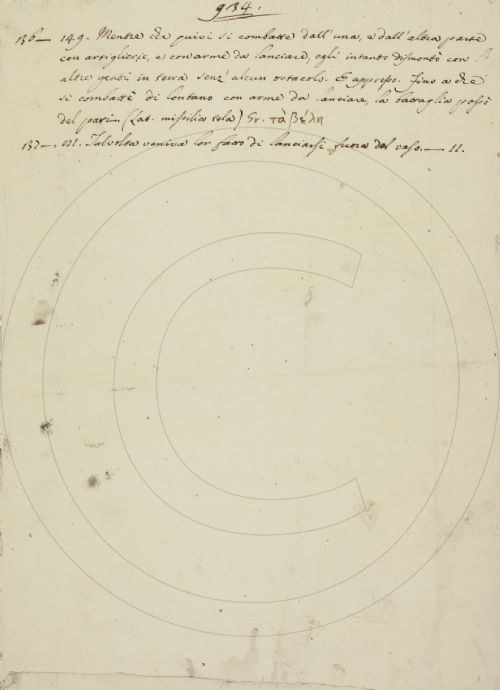 934.
136— 149. Mentre che quivi si combatte dall'una, e dall'altra parte
con artiglierie, e con arme da lanciare, egli intanto dismontò con
altre genti in terra senz'alcun ostacolo. E appresso. Fino a che
si combattè di lontano con arme da lanciare, la battaglia passò
del pari— (lat. missilia tela) Gr. τὰ βέλη
137—. 151. Talvolta veniva lor fatto di lanciarsi fuora del vaso.— 11.